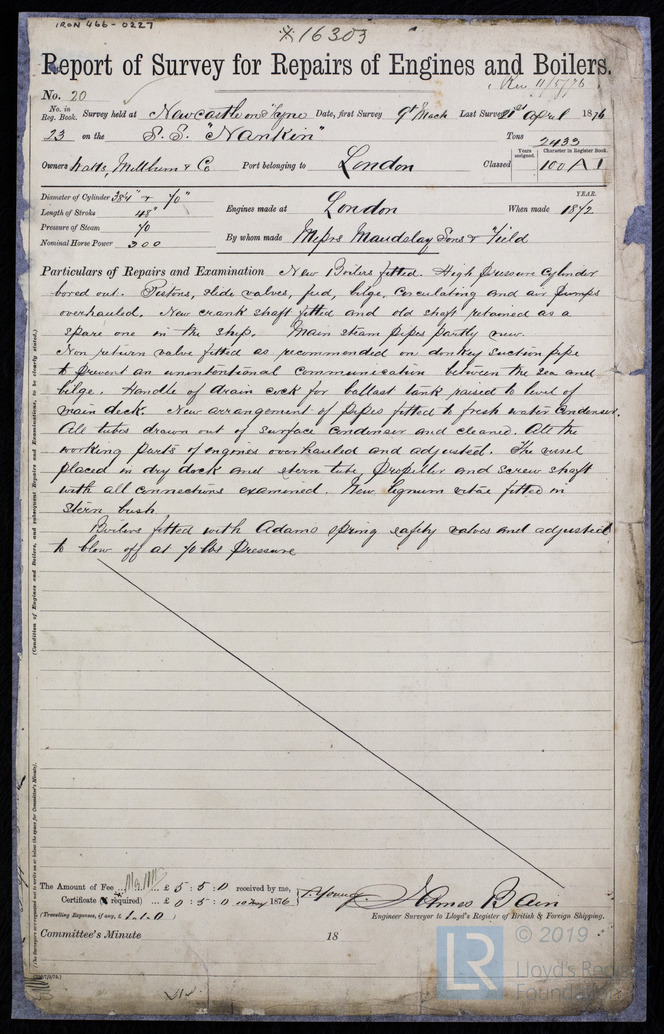 IRON 466-0227
*16303
Report of Survey for Repairs of Engines and Boilers.
Rec 11/5/76
No. 20
No. in Reg. Book. Survey held at Newcastle on Tyne Date, first Survey 9th March Last Survey 21st April 1876
23 on the S.S. "Nankin" Tons 2433
Owners Watts, Millburn & Co Port belonging to London Classed Years assigned. Character in Register Book. 100 A 1
Diameter of Cylinder 38¼" & 70"
Length of Stroke 48"
Pressure of Steam 70
Nominal Horse Power 300
Engines made at London When made YEAR. 1872
By whom made Messrs Maudslay Sons & Field
Particulars of Repairs and Examination New Boilers fitted. High pressure cylinder
bored out. Pistons, slide valves, feed, bilge, circulating and air pumps
overhauled. New crank shaft fitted and old shaft retained as a
spare one in the ship. Main steam pipes partly new.
Non return valve fitted as recommended on donkey suction pipe
to prevent an unintentional communication between the sea and
bilge. Handle of drain cock for ballast tank raised to level of
main deck. New arrangement of pipes fitted to fresh water condenser.
All tubes drawn out of surface condenser and cleaned. All the
working parts of engines overhauled and adjusted. The vessel
placed in dry dock and stern tube propeller and screw shaft
with all connections examined. New lignum vitae fitted in
stern bush
Boilers fitted with Adams spring safety valves and adjusted
to blow off at 70 lbs pressure
(Condition of Engines and Boilers, and subsequent Repairs and Examinations, to be clearly stated.)
(The Surveyors are requested not to write on or below the space for Committee's Minute).
The Amount of Fee ... £ 5 : 5 : 0 received by me,
Certificate (if required) ... £ 0 : 5 : 0 10 May 1876
(Travelling Expenses, if any, £ 1.1.0)
James Bain
Engineer Surveyor to Lloyd's Register of British & Foreign Shipping.
Committee's Minute 18
LR
© 2019
Lloyd's Register
Foundation